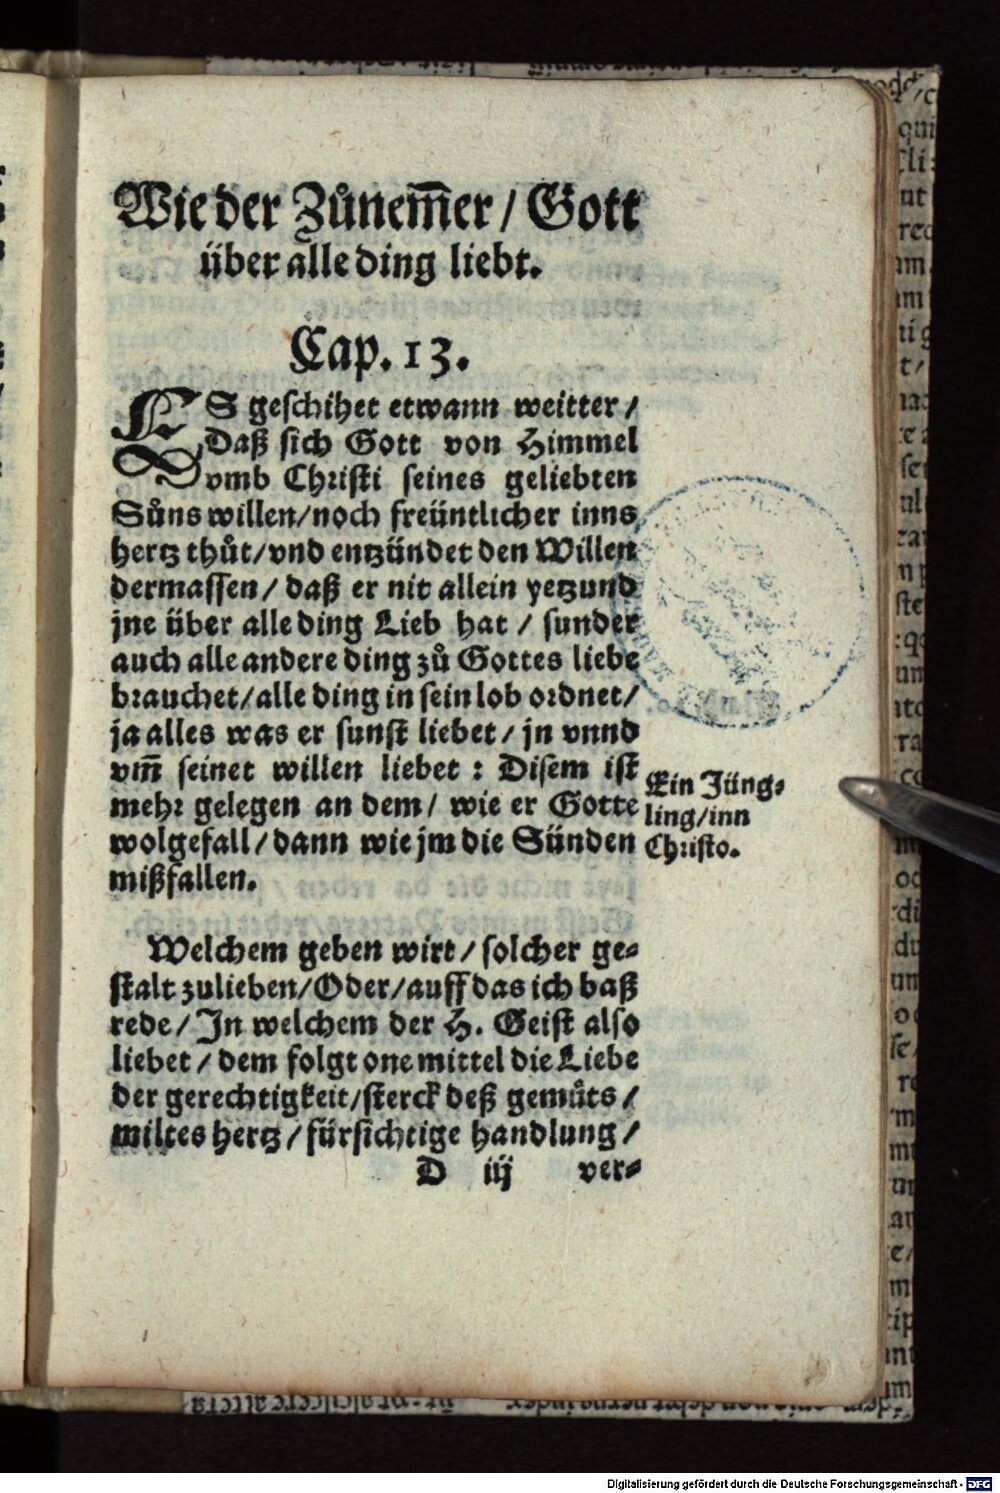 Wie der Zůnem̄er / Gott
über alle ding liebt.
Cap. 13.
ES geschihet etwann weitter /
Daß sich Gott von Himmel
vmb Christi seines geliebten
Sůns willen / noch freüntlicher inns
hertz thůt / vnd entzündet den Willen
dermassen / daß er nit allein yetzund
jne über alle ding Lieb hat / sunder
auch alle andere ding zů Gottes liebe
brauchet / alle ding in sein lob ordnet /
ja alles was er sunst liebet / jn vnnd
vm̄ seinet willen liebet : Disem ist
mehr gelegen an dem / wie er Gotte
wolgefall / dann wie jm die Sünden
mißfallen.
Ein Jüng-
ling / inn
Christo.
Welchem geben wirt / solcher ge-
stalt zulieben / Oder / auff das ich baß
rede / In welchem der H. Geist also
liebet / dem folgt one mittel die Liebe
der gerechtigkeit / sterck deß gemůts /
miltes hertz / fürsichtige handlung /
D iij ver-
Digitalisierung gefördert durch die Deutsche Forschungsgemeinschaft - DFG